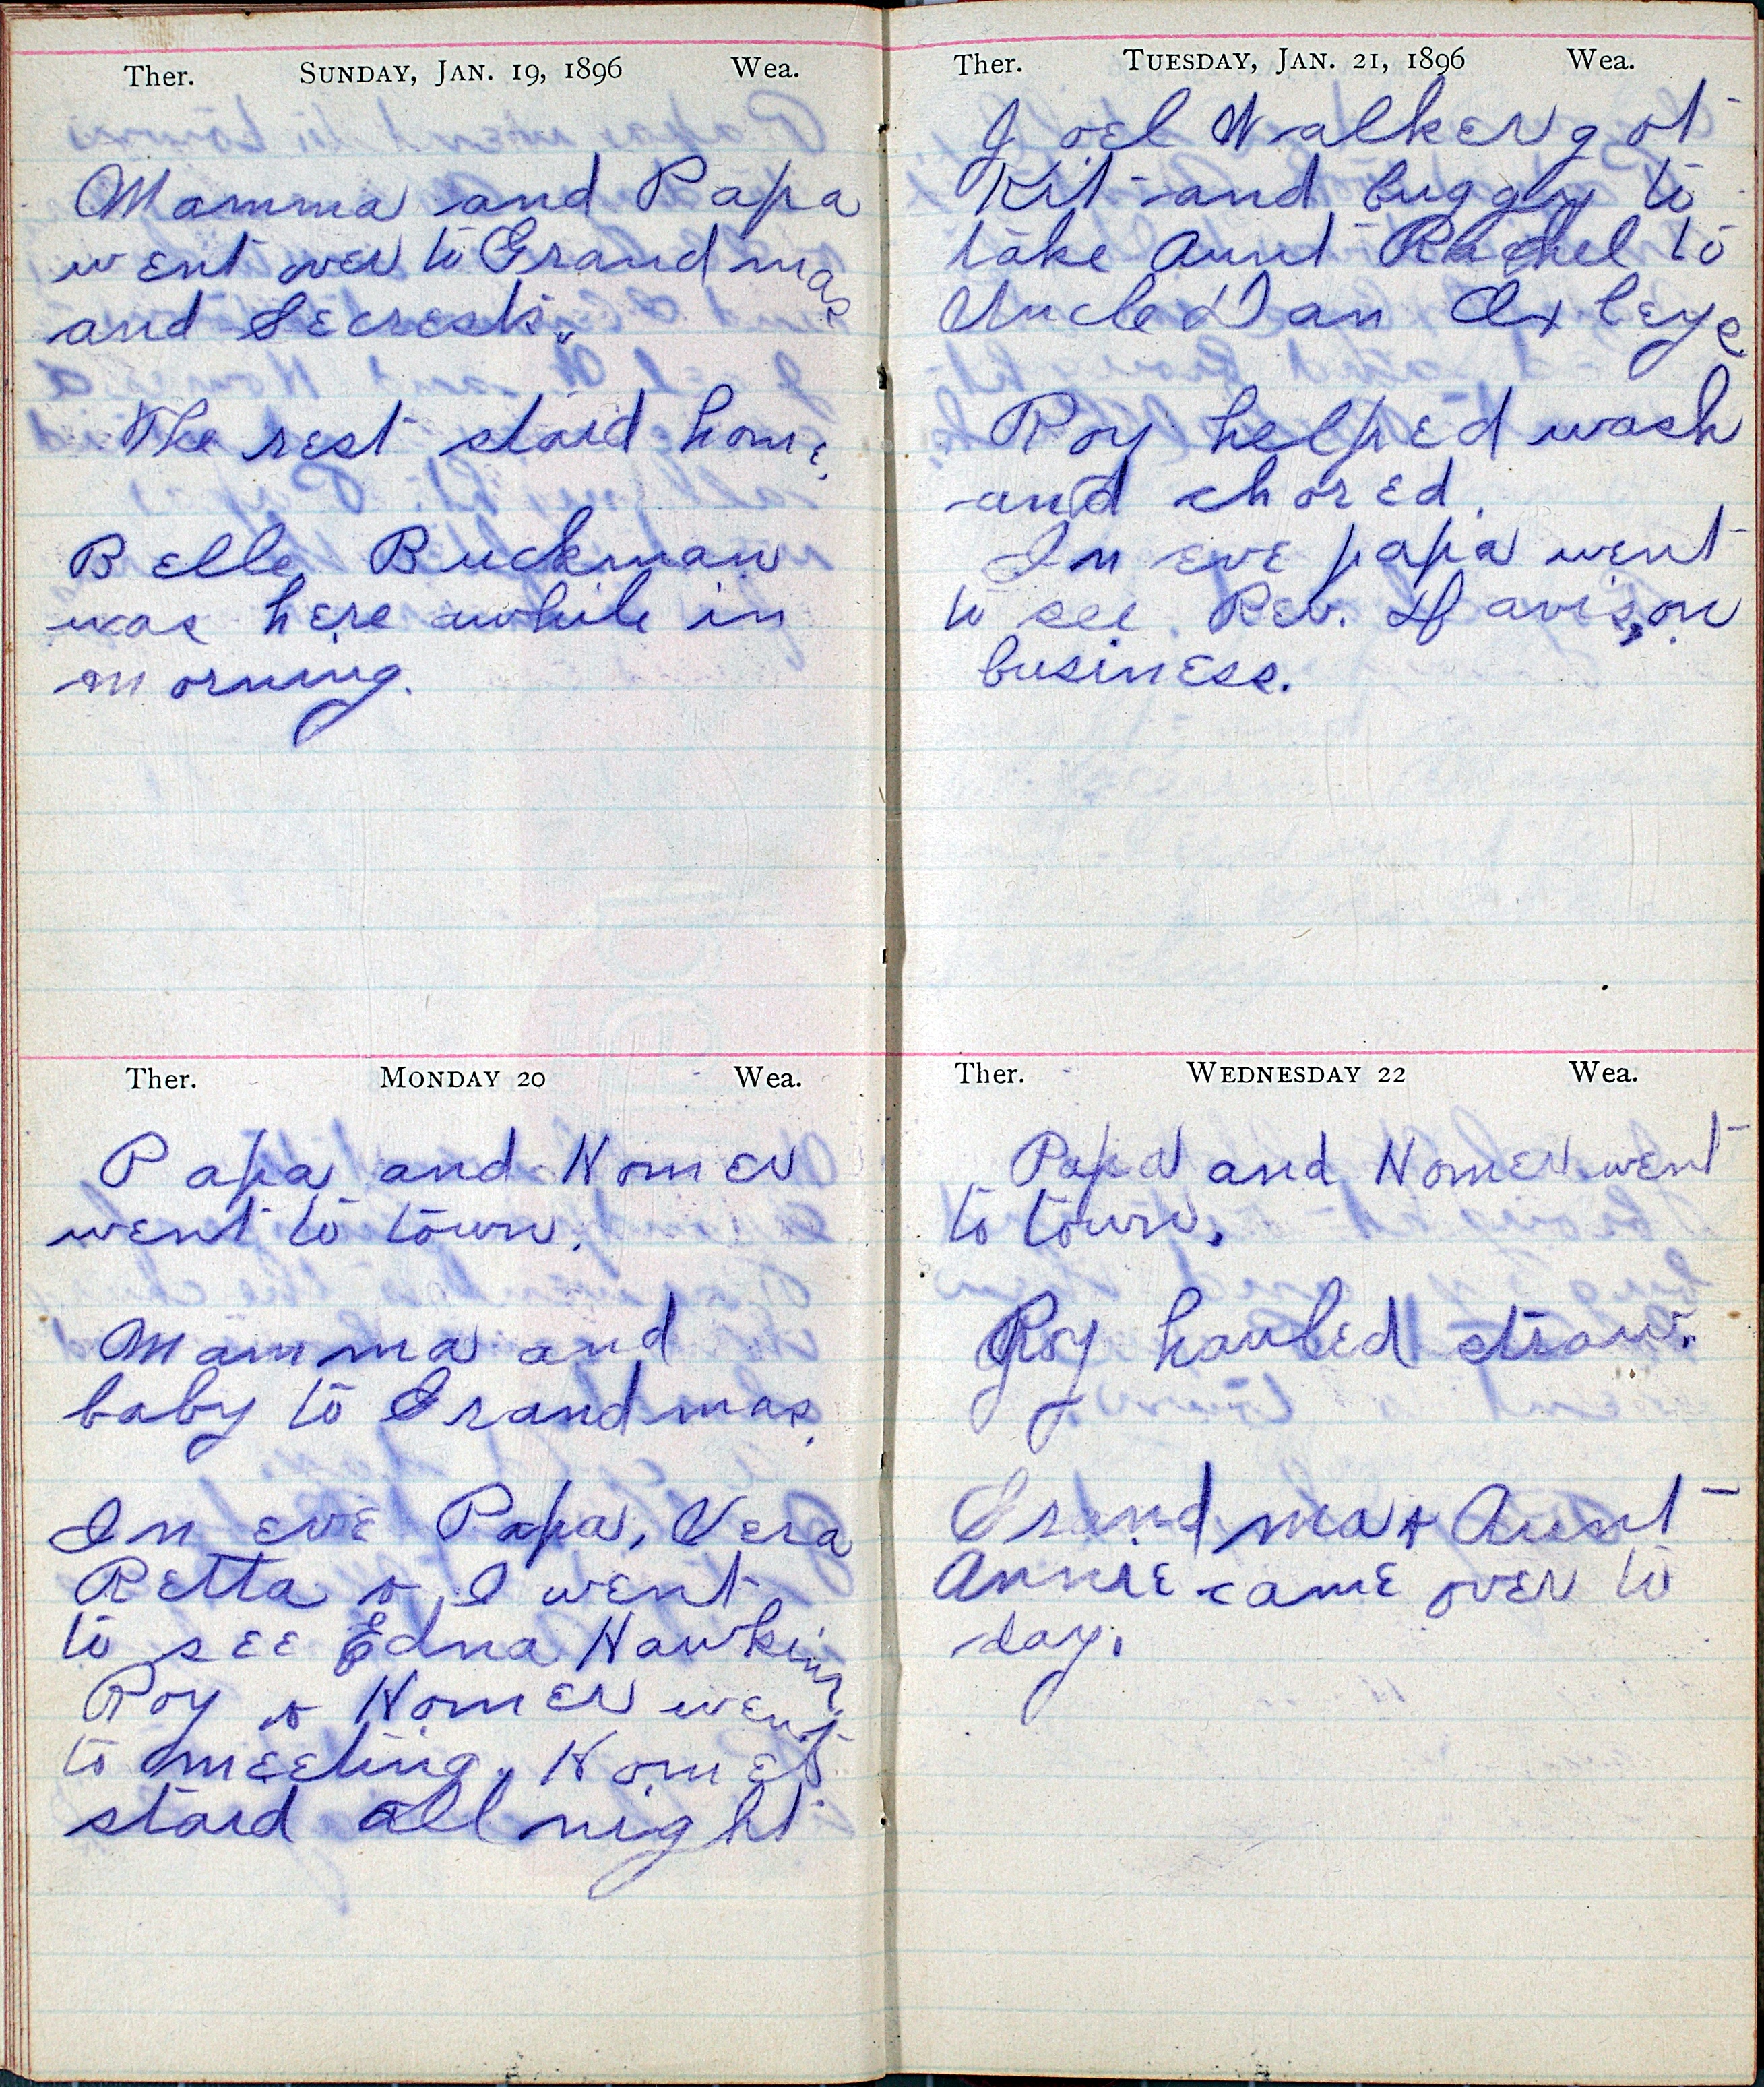 Ther. SUNDAY, JAN. 19, 1896 Wea.
Mamma and Papa
went over to Grandmas
and Secrests.
The rest staid home.
Belle Buckman
was here awhile in
morning.
Ther. MONDAY 20 Wea.
Papa and Homer
went to town.
Mamma and
baby to Grandmas.
In eve Papa, Vera
Retta & I went
to see Edna Hawkins.
Roy & Homer went
to meeting. Homer
staid all night
Ther. TUESDAY, JAN. 21, 1896 Wea.
Joel Walker got
Kit and buggy to
take Aunt Rachel to
Uncle Dan Oxleys
Roy helped wash
and chored.
In eve papa went
to see Rev. Davis, on
business.
Ther. WEDNESDAY 22 Wea.
Papa and Homer went
to town.
Roy hauled straw.
Grandma & Aunt
Annie came over to
day.